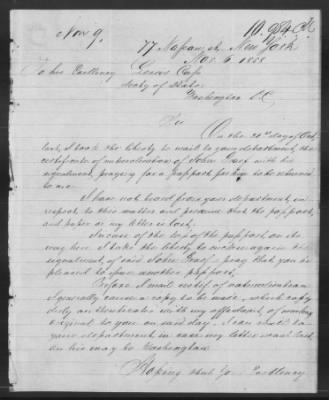 Nov 9.
77 Nassau st. New York
Nov. 6. 1858
To his Excellency Lewis Cass
Secty of State
Washington D.C.
Sir
On the 20th day of Oct
last, I took the liberty to mail to your department, the
certificate of naturalization of John Graef with his
signalment, praying for a passport for him to be returned
to me.
I have not heard from your department, in
respect to this matter and presume that the passport,
and paper or my letter is lost.
In case of the loss of the passport, on its
way here I take the liberty to enclose again the
signalment of said John Graef & pray that you be
pleased to issue another passport.
Before I mail certif of naturalization
I generally cause a copy to be made, which copy
duly authenticated with my affidavit, of mailing
original to you on said day, I can send to
your department in case my letter went lost
on his way to Washington.
Hoping that Your Excellency